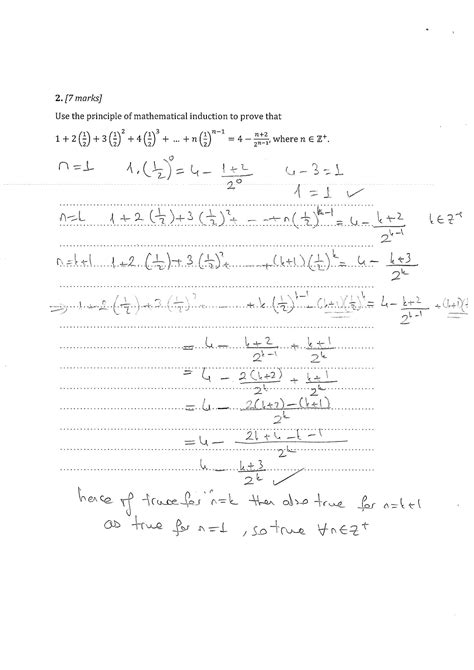 2. [7 marks]
Use the principle of mathematical induction to prove that
1 + 2(1/2) + 3(1/2)^2 + 4(1/2)^3 + ... + n(1/2)^(n−1) = 4 − (n+2)/2^(n−1), where n ∈ ℤ⁺.
n=1 1.(1/2)^0 = 4 − (1+2)/2^0 4−3=1
1=1 ✓
n=k 1+2(1/2)+3(1/2)^2+ - -+n(1/2)^(k−1) = 4 − (k+2)/2^(k−1) k∈Z⁺
n=k+1 1+2(1/2)+3(1/2)^2+ - - +(k+1)(1/2)^k = 4 − (k+3)/2^k
⇒ 1+2(1/2)+3(1/2)^2 - - +k(1/2)^(k−1) − (k+1)(1/2)^k = 4 − (k+2)/2^(k−1) +
= 4 − (k+2)/2^(k−1) + (k+1)/2^k
= 4 − 2(k+2)/2^k + (k+1)/2^k
= 4 − (2(k+2)−(k+1))/2^k
= 4 − (2k+4−k−1)/2^k
4 − (k+3)/2^k ✓
hence if true for n=k then also true for n=k+1
as true for n=1, so true ∀n∈Z⁺